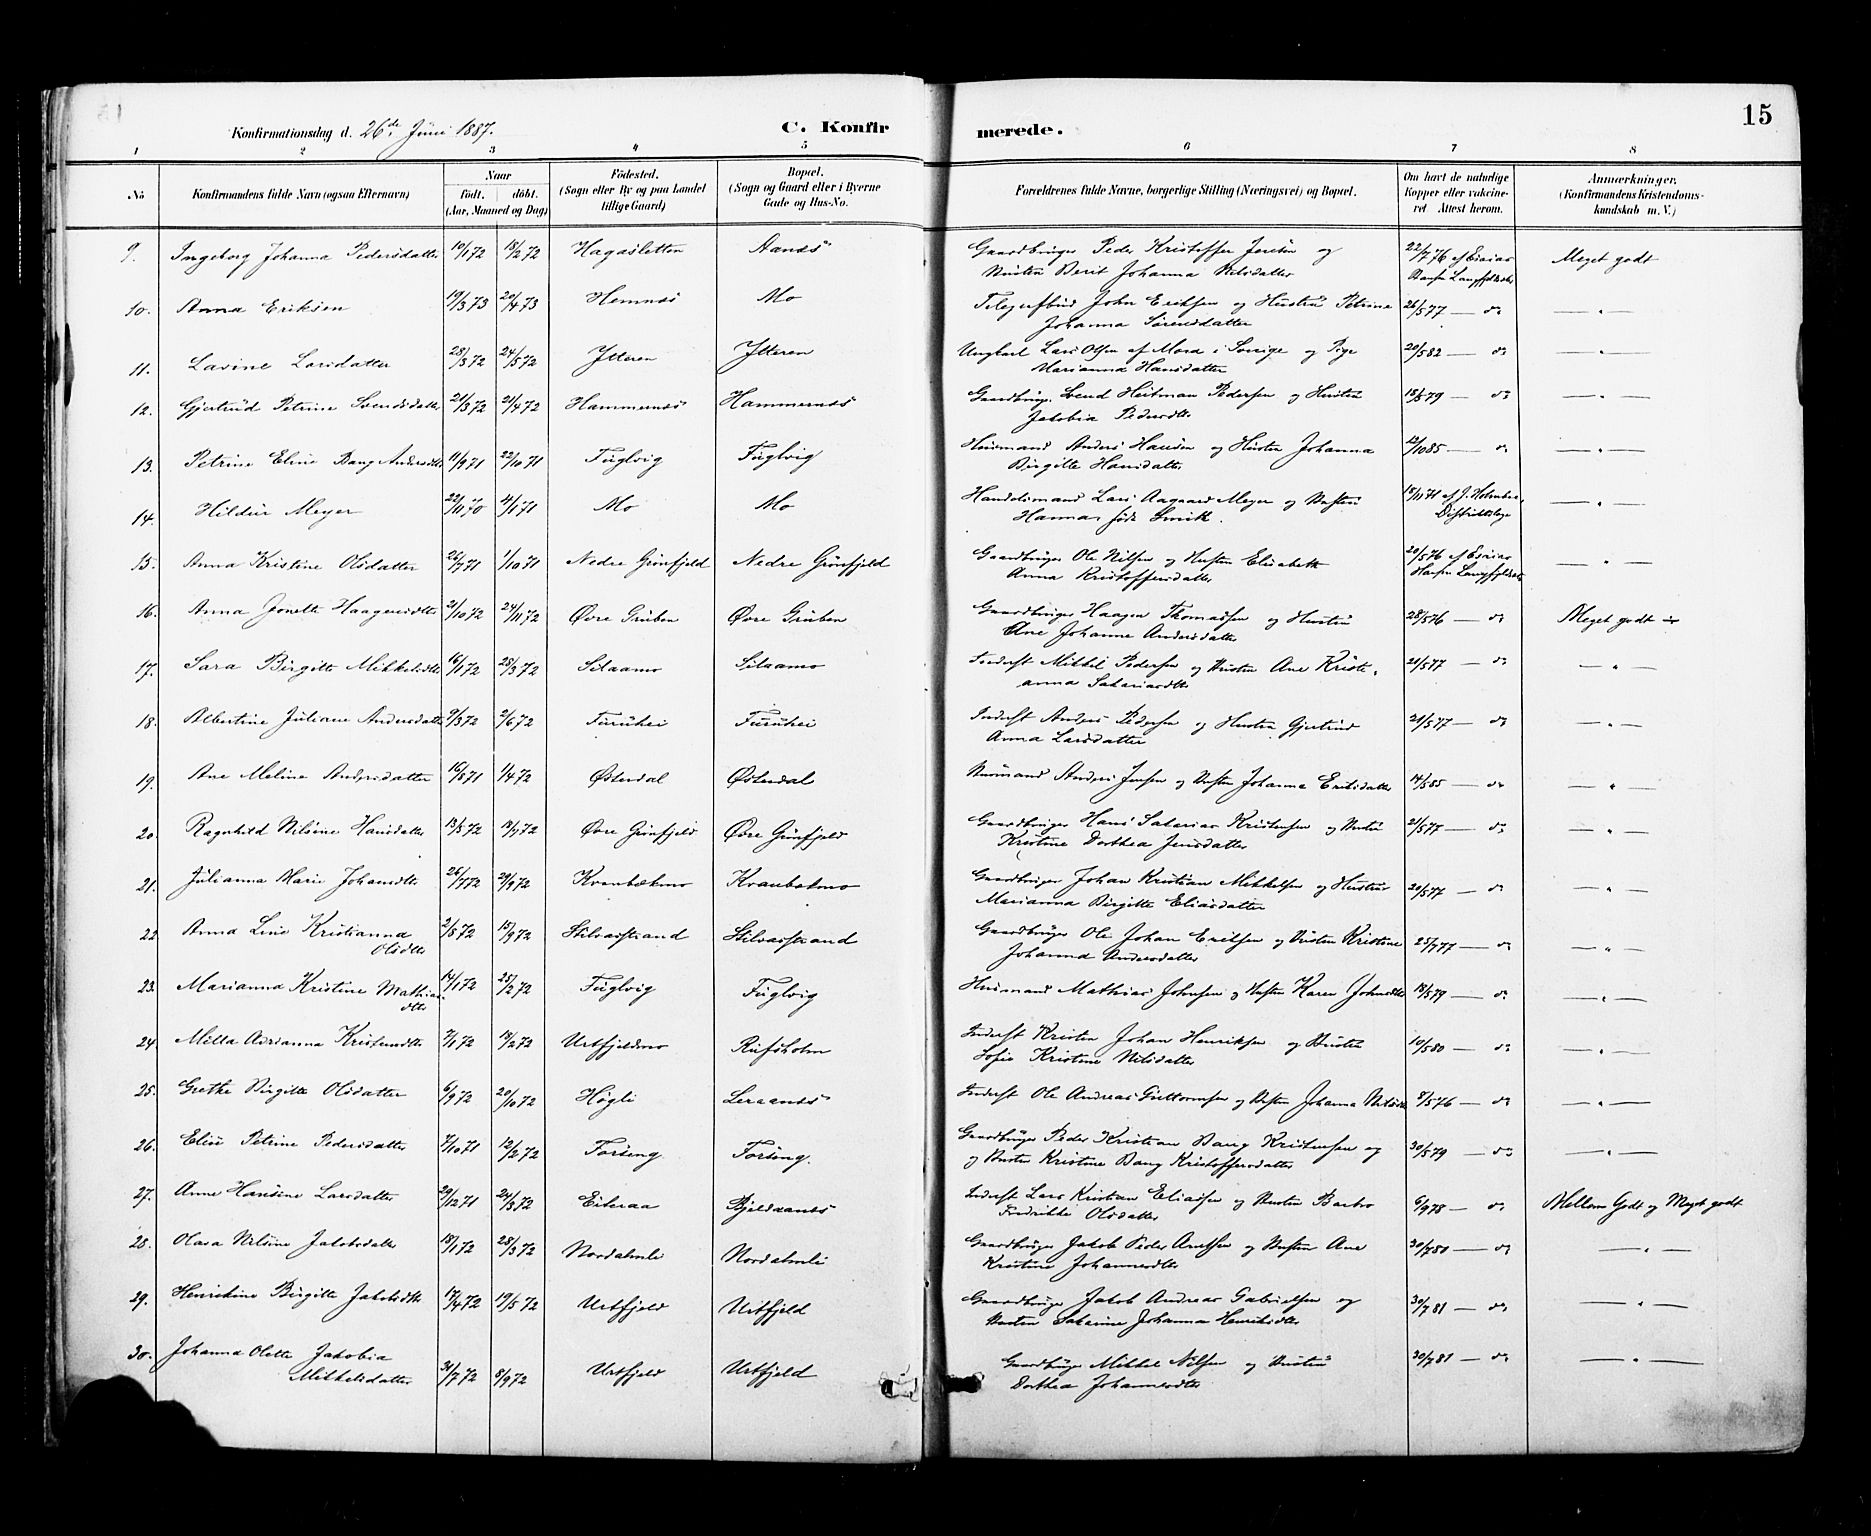 15
Konfirmationsdag d. 26de Juni 1887.
C. Konfir
merede.
1 2 3 4 5 6 7 8
No
Konfirmandens fulde Navn (ogsaa Efternavn)
Naar
født. døbt.
(Aar, Maaned og Dag)
Fødested.
(Sogn eller By og paa Landet
tillige Gaard)
Bopæl.
(Sogn og Gaard eller i Byerne
Gade og Hus-No.
Forældrenes fulde Navne, borgerlige Stilling (Næringsvei) og Bopæl.
Om havt de naturlige
Kopper eller vakcine-
ret Attest herom.
Anmærkninger,
(Konfirmandens Kristendoms-
kundskab m. V.)
9. Ingeborg Johanna Pedersdatter 10/1 72 18/2 72 Hagasletten Aanæs Gaardbruger Peder Kristoffer Jensen og
Hustru Berit Johanna Nilsdatter 22/7 76 af Esaias Hansen Langfjeldnæs Meget godt
10. Anna Eriksen 19/3 73 20/4 73 Hemnæs Mo Telegrafbud John Eriksen og Hustru Petrine
Johanna Sørensdatter 26/5 77 — do — " —
11. Lavine Larsdatter 28/3 72 24/5 72 Ytteren Ytteren Ungkarl Lars Olsen af Mord i Sverige og Pige
Marianna Hansdatter 20/5 82 — do — " —
12. Gjertrud Petrine Svendsdatter 21/3 72 21/4 72 Hammernæs Hammernæs Gaardbrug. Svend Heitman Pedersen og Hustru
Jakobia Pedersdtr 18/5 79 — do — " —
13. Petrine Eline Bang Andersdtr 11/9 71 22/10 71 Fuglvig Fuglvig Husmand Anders Hansen og Hustru Johanna
Birgitte Hansdatter 12/10 85 — do — " —
14. Hildur Meyer 22/11 70 4/1 71 Mo Mo Handelsmand Lars Aagaard Meyer og Hustru
Hanna født 18/11 71 af J. Holmboe, Distriktslæge — " —
15. Anna Kristine Olsdatter 26/7 71 1/10 71 Nedre Grønfjeld Nedre Grønfjeld Gaardbruger Ole Nilsen og Hustru Elisabeth
Anna Kristoffersdatter 20/5 76 af Esaias Hansen Langfjeldnæs — " —
16. Anna Jonette Haagensdtr 21/10 72 24/11 72 Øvre Gruben Øvre Gruben Gaardbruger Haagen Thomassen og Hustru
Ane Johanne Andersdatter 28/5 76 — do Meget godt
17. Sara Birgitte Mikkelsdtr 16/1 72 25/3 72 Selaamo Selaamo Inderst Mikkel Pedersen og Hustru Ane Kristi-
anna Sakariasdtr 21/5 77 — do — " —
18. Albertine Juliane Andersdatter 9/3 72 2/6 72 Furuhei Furuhei Inderst Anders Pedersen og Hustru Gjertrud
Anna Larsdatter 21/5 77 — do — " —
19. Ane Meline Andersdatter 16/8 71 1/4 72 Østerdal Østerdal Husmand Anders Jensen og Hustru Johanna Eriksdatter 14/5 85 — do — " —
20. Ragnhild Nilsine Hansdatter 13/5 72 Øvre Grønfjeld Øvre Grønfjeld Gaardbruger Hans Sakarias Kristensen og Hustru
Kristine Dorthea Jensdatter 21/5 77 — do — " —
21. Julianna Marie Johansdtr 26/7 72 29/9 72 Kvanbækmo Kvanbekmo Gaardbruger Johan Kristian Mikkelsen og Hustru
Marianna Birgitte Eliasdatter 20/5 77 — do — " —
22. Anna Line Kristianna
Olsdtr 2/8 72 15/9 72 Stilvasstrand Stilvasstrand Gaardbruger Ole Johan Eriksen og Hustru Kristine
Johanna Andersdatter 25/7 77 — do — " —
23. Marianna Kristine Mathias-
dtr 14/1 72 25/2 72 Fuglvig Fuglvig Husmand Mathias Johnsen og Hustru Karen Johnsdtr 18/5 79 — do — " —
24. Milla Adrianna Kristensdtr 7/1 72 18/2 72 Urtfjeldmo Rufsholm Inderst Kristen Johan Henriksen og Hustru
Sofie Kristine Nilsdatter 10/5 80 — do — " —
25. Grethe Birgitte Olsdatter 6/9 72 20/10 72 Høgli Leraanæs Inderst Ole Andreas Guttormsen og Hustru Johanna Nilsdtr 8/5 76 — do — " —
26. Elise Petrine Pedersdatter 7/10 71 12/2 72 Forseng Forseng. Gaardbruger Peder Kristian Bang Kristensen og
og Hustru Kristine Bang Kristoffersdatter 30/5 79 — do — " —
27. Anne Hansine Larsdatter 29/12 71 24/3 72 Eiteraa Bjeldaanæs Inderst Lars Kristian Eliassen og Hustru Barbro
Fredrikke Olsdatter 6/9 78 — do Mellem Godt og Meget godt
28. Olava Nilsine Jakobsdatter 18/1 72 28/3 72 Nordalmli Nordalmli Gaardbruger Jakob Peder Arntsen og Hustru Ane
Kristine Johannesdtr 30/7 80 — do — " —
29. Henrikine Birgitte Jakobsdtr 17/4 72 19/5 72 Urtfjeld Urtfjeld Gaardbruger Jakob Andreas Gabrielsen og
Hustru Sakrine Johanna Henriksdtr 30/7 81 — do — " —
30. Johanna Olette Jakobia
Mikkelsdatter 31/7 72 8/9 72 Urtfjeld Urtfjeld Gaardbruger Mikkel Nilsen og Hustru
Dorthea Johannesdtr 30/7 81 — do — " —